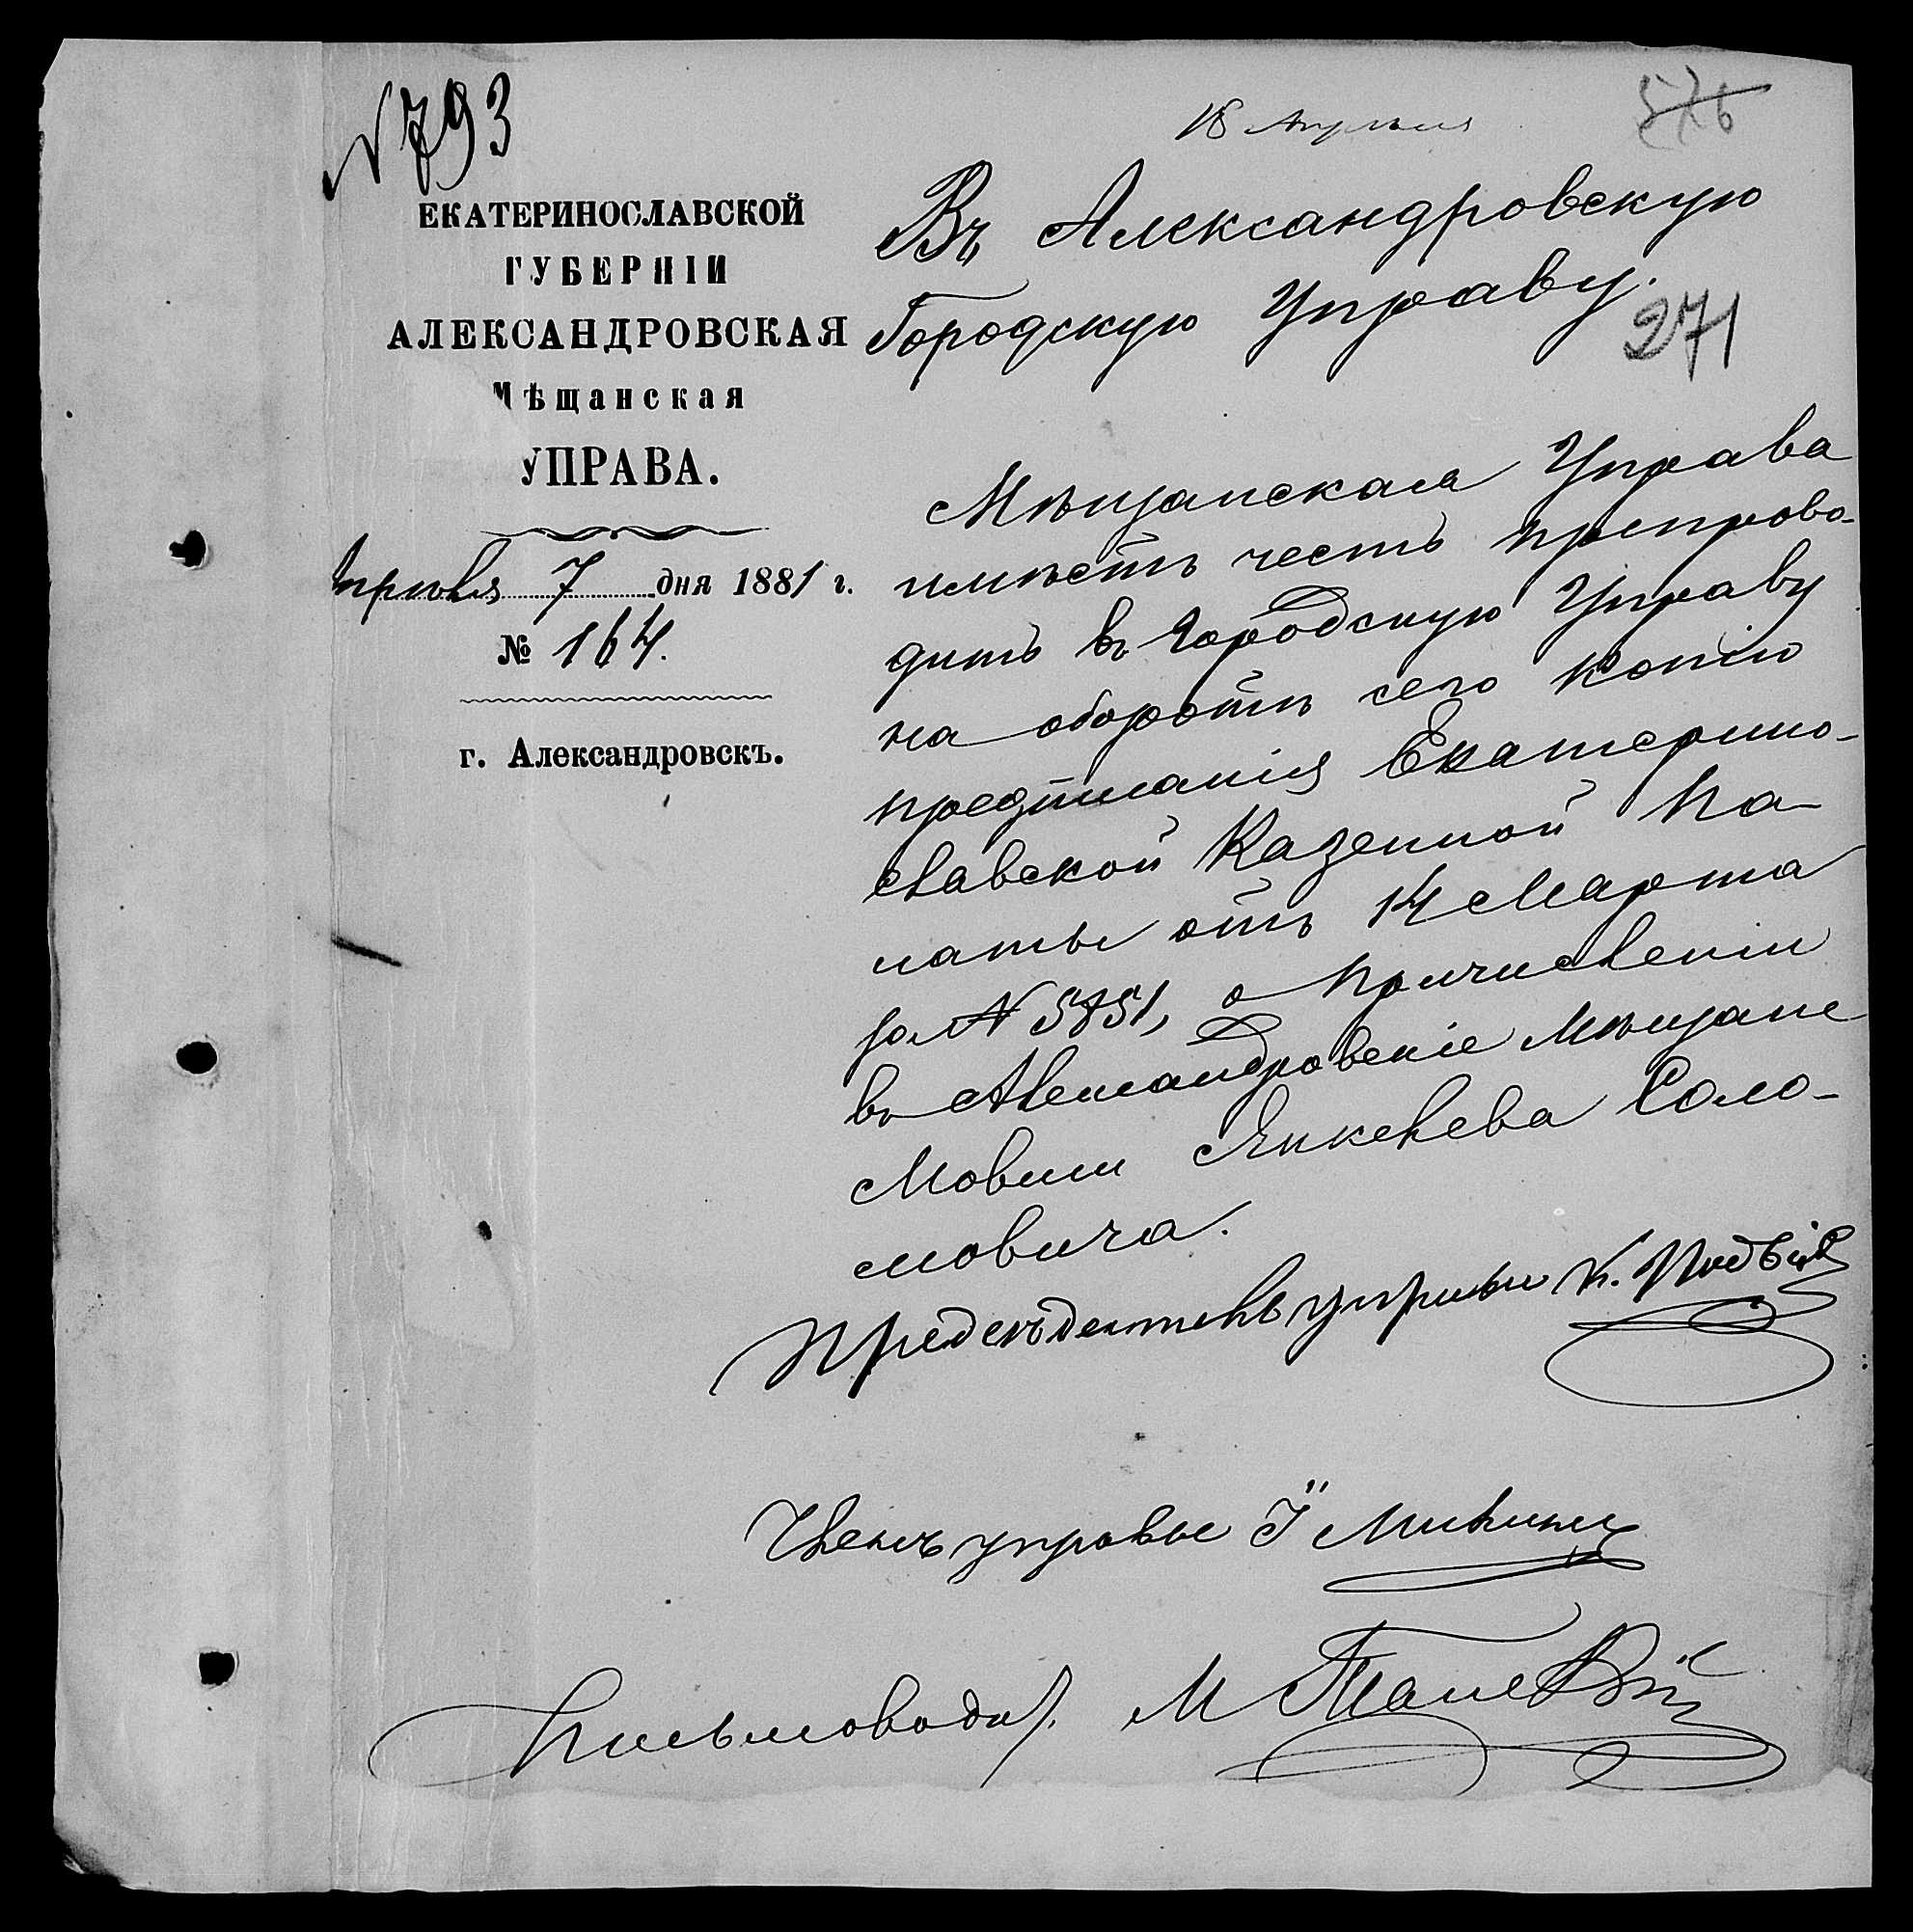 № 793
18 Апрѣля
576
ЕКАТЕРИНОСЛАВСКОЙ
ГУБЕРНІИ
АЛЕКСАНДРОВСКАЯ
Мѣщанская
УПРАВА.
Апрѣля 7 дня 1881 г.
№ 164.
г. Александровскъ.
Въ Александровскую
Городскую Управу.
271
Мѣщанская Управа
имѣетъ честь препрово-
дить въ Городскую Управу
на оборотѣ сего копію
предписанія Екатерино-
славской Казенной Па-
латы отъ 14 Марта
за № 5851, о причисленіи
въ Александровскіе Мѣщане
Мовши Янкелева Соло-
мовича.
Предсѣдатель управы К.
Членъ управы І
Письмоводит. М